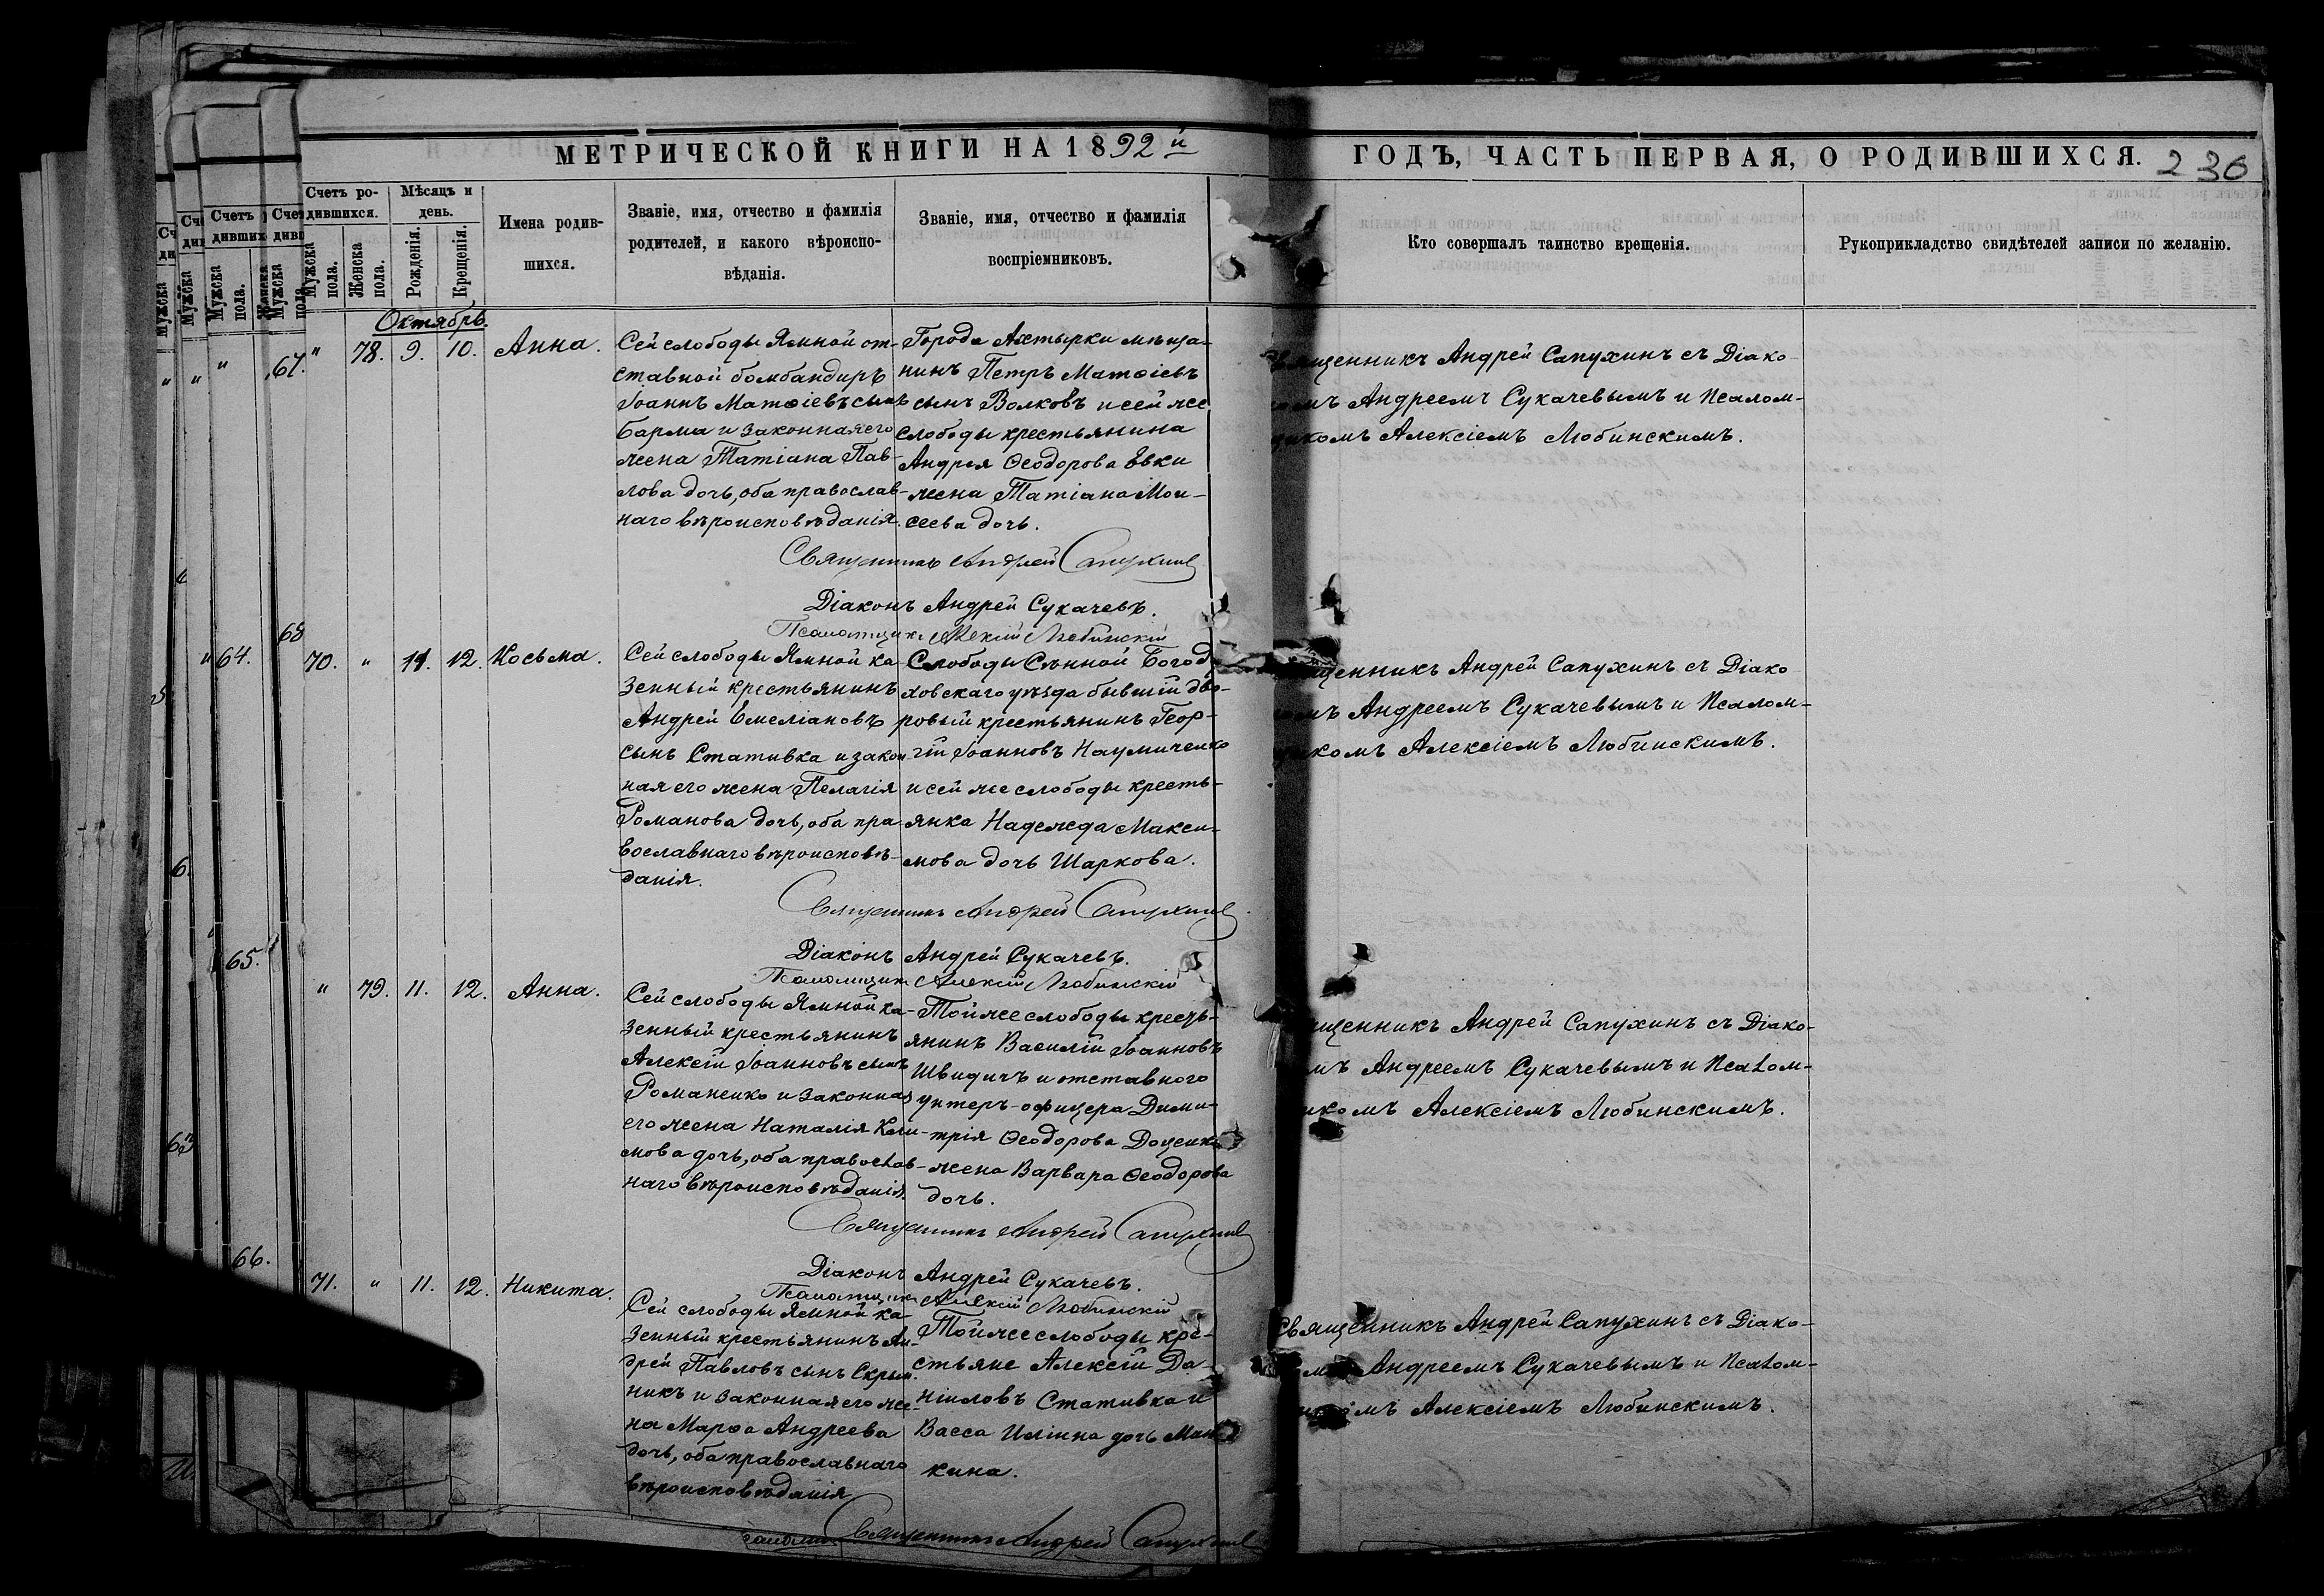 МЕТРИЧЕСКОЙ КНИГИ НА 1892й
ГОДЪ, ЧАСТЬ ПЕРВАЯ, О РОДИВШИХСЯ.
230
Счетъ ро-
дившихся.
Мужска пола.
Женска пола.
Мѣсяцъ и
день.
Рожденія.
Крещенія.
Имена родив-
шихся.
Званіе, имя, отчество и фамилія
родителей, и какого вѣроиспо-
вѣданія.
Званіе, имя, отчество и фамилія
воспріемниковъ.
Кто совершалъ таинство крещенія.
Рукоприкладство свидѣтелей записи по желанію.
Октябрь.
" 78. 9. 10. Анна.
Сей слободы Ямной от-
ставной бомбандиръ
Іоаннъ Матѳіевъ сынъ
Барма и законная его
жена Татіана Пав-
лова дочь, оба православ-
наго вѣроисповѣданія.
Города Ахтырки мѣща-
нинъ Петръ Матѳіевъ
сынъ Волковъ и сей же
слободы крестьянина
Андрея Ѳеодорова Евки
жена Татіана Мои-
сеева дочь.
Священникъ Андрей Сапухинъ съ Діако-
номъ Андреемъ Сукачевымъ и Псалом-
щикомъ Алексіемъ Любинскимъ.
Священникъ Андрей Сапухинъ
Діаконъ Андрей Сукачевъ.
Псаломщикъ Алексій Любинскій
70. " 11. 12. Косьма.
Сей слободы Ямной ка-
зенный крестьянинъ
Андрей Емеліановъ
сынъ Стативка и закон-
ная его жена Пелагія
Романова дочь, оба пра-
вославнаго вѣроисповѣ-
данія.
Слободы Сѣнной Богоду-
ховскаго уѣзда бывшій дво-
ровый крестьянинъ Геор-
гій Іоанновъ Наумиченко
и сей же слободы кресть-
янка Надежда Макси-
мова дочь Шаркова.
Священникъ Андрей Сапухинъ съ Діако
номъ Андреемъ Сукачевымъ и Псалом-
щикомъ Алексіемъ Любинскимъ.
Священникъ Андрей Сапухинъ
Діаконъ Андрей Сукачевъ.
Псаломщикъ Алексій Любинскій
" 79. 11. 12. Анна.
Сей слободы Ямной ка-
зенный крестьянинъ
Алексій Іоанновъ сынъ
Романенко и законная
его жена Наталія Кли-
мова дочь, оба православ-
наго вѣроисповѣданія.
Той же слободы кресть-
янинъ Василій Іоанновъ
Швидичъ и отставного
унтеръ-офицера Дими-
трія Ѳеодорова Доценко
жена Варвара Ѳеодорова
дочь.
Священникъ Андрей Сапухинъ съ Діако-
номъ Андреемъ Сукачевымъ и Псалом-
щикомъ Алексіемъ Любинскимъ.
Священникъ Андрей Сапухинъ
Діаконъ Андрей Сукачевъ.
Псаломщикъ Алексій Любинскій
71. " 11. 12. Никита.
Сей слободы Ямной ка-
зенный крестьянинъ Ан-
дрей Павловъ сынъ Скрын-
никъ и законная его же-
на Марѳа Андреева
дочь, оба православнаго
вѣроисповѣданія
Той же слободы кре-
стьяне Алексій Да-
ніиловъ Стативка и
Васса Иліина дочь
кина.
Священникъ Андрей Сапухинъ съ Діако-
номъ Андреемъ Сукачевымъ и Псалом-
щикомъ Алексіемъ Любинскимъ.
Священникъ Андрей Сапухинъ
67.
68
64.
65.
66.